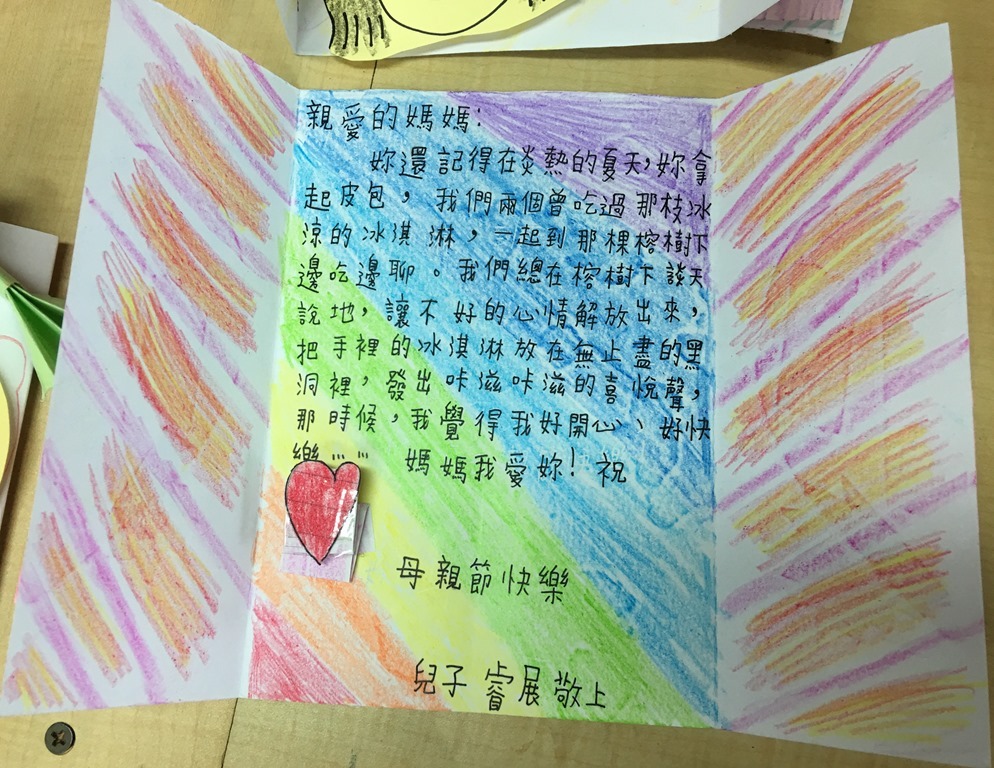 親愛的媽媽:
妳還記得在炎熱的夏天,妳拿
起皮包,我們兩個曾吃過那枝冰
涼的冰淇淋,一起到那棵榕樹下
邊吃邊聊。我們總在榕樹下談天
說地,讓不好的心情解放出來,
把手裡的冰淇淋放在無止盡的黑
洞裡,發出咔滋咔滋的喜悅聲,
那時候,我覺得我好開心、好快
樂…… 媽媽我愛妳!祝
母親節快樂
兒子 睿展敬上